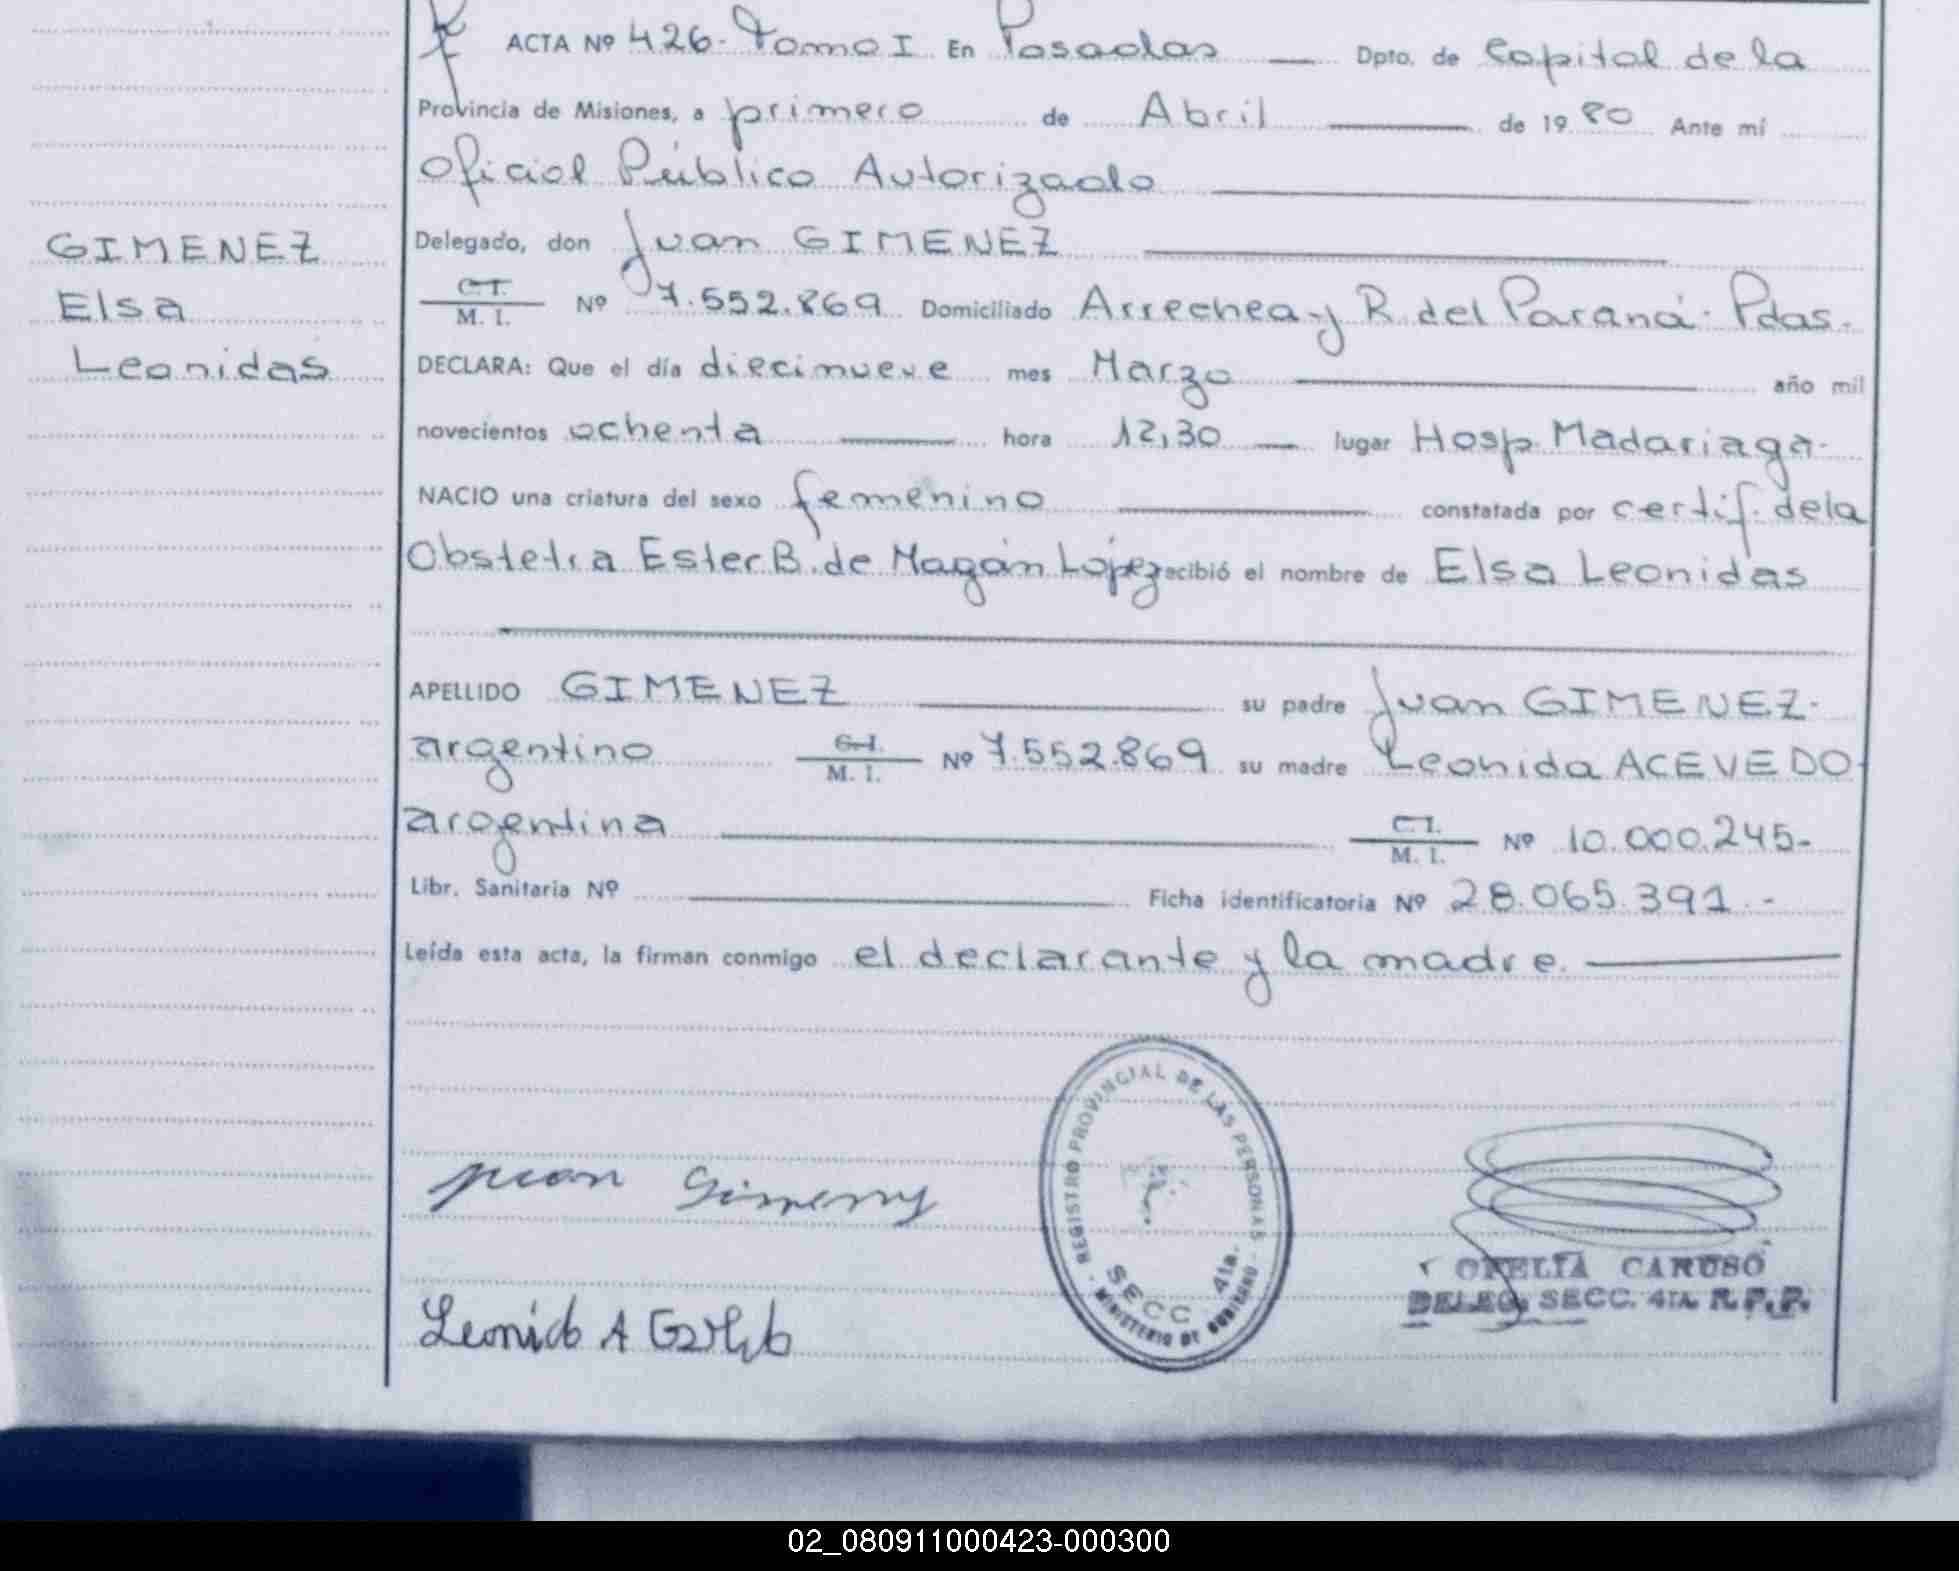 ACTA Nº 426- Tomo I En Posadas Dpto. de Capital de la
Provincia de Misiones, a primero de Abril de 1980 Ante mí
Oficial Público Autorizado
GIMENEZ
Elsa
Leonidas
Delegado, don Juan GIMENEZ
C.I. M. I. Nº 7.552.869 Domiciliado Arrechea y R. del Paraná. Pdas.
DECLARA: Que el día diecinueve mes Marzo año mil
novecientos ochenta hora 12,30 lugar Hosp. Madariaga-
NACIO una criatura del sexo femenino constatada por certif. de la
Obstetra Ester B. de Magán López recibió el nombre de Elsa Leonidas
APELLIDO GIMENEZ su padre Juan GIMENEZ.
argentino C.I. M. I. Nº 7.552.869 su madre Leonida ACEVEDO
argentina C.I. M. I. Nº 10.000.245-
Libr. Sanitaria Nº Ficha identificatoria Nº 28.065.391.-
Leída esta acta, la firman conmigo el declarante y la madre.
REGISTRO PROVINCIAL DE LAS PERSONAS
SECC. 4ta.
MINISTERIO DE GOBIERNO
Juan Gimenez
OFELIA CARUSO
DELEG. SECC. 4TA. R. P. P.
Leonida A
02_080911000423-000300